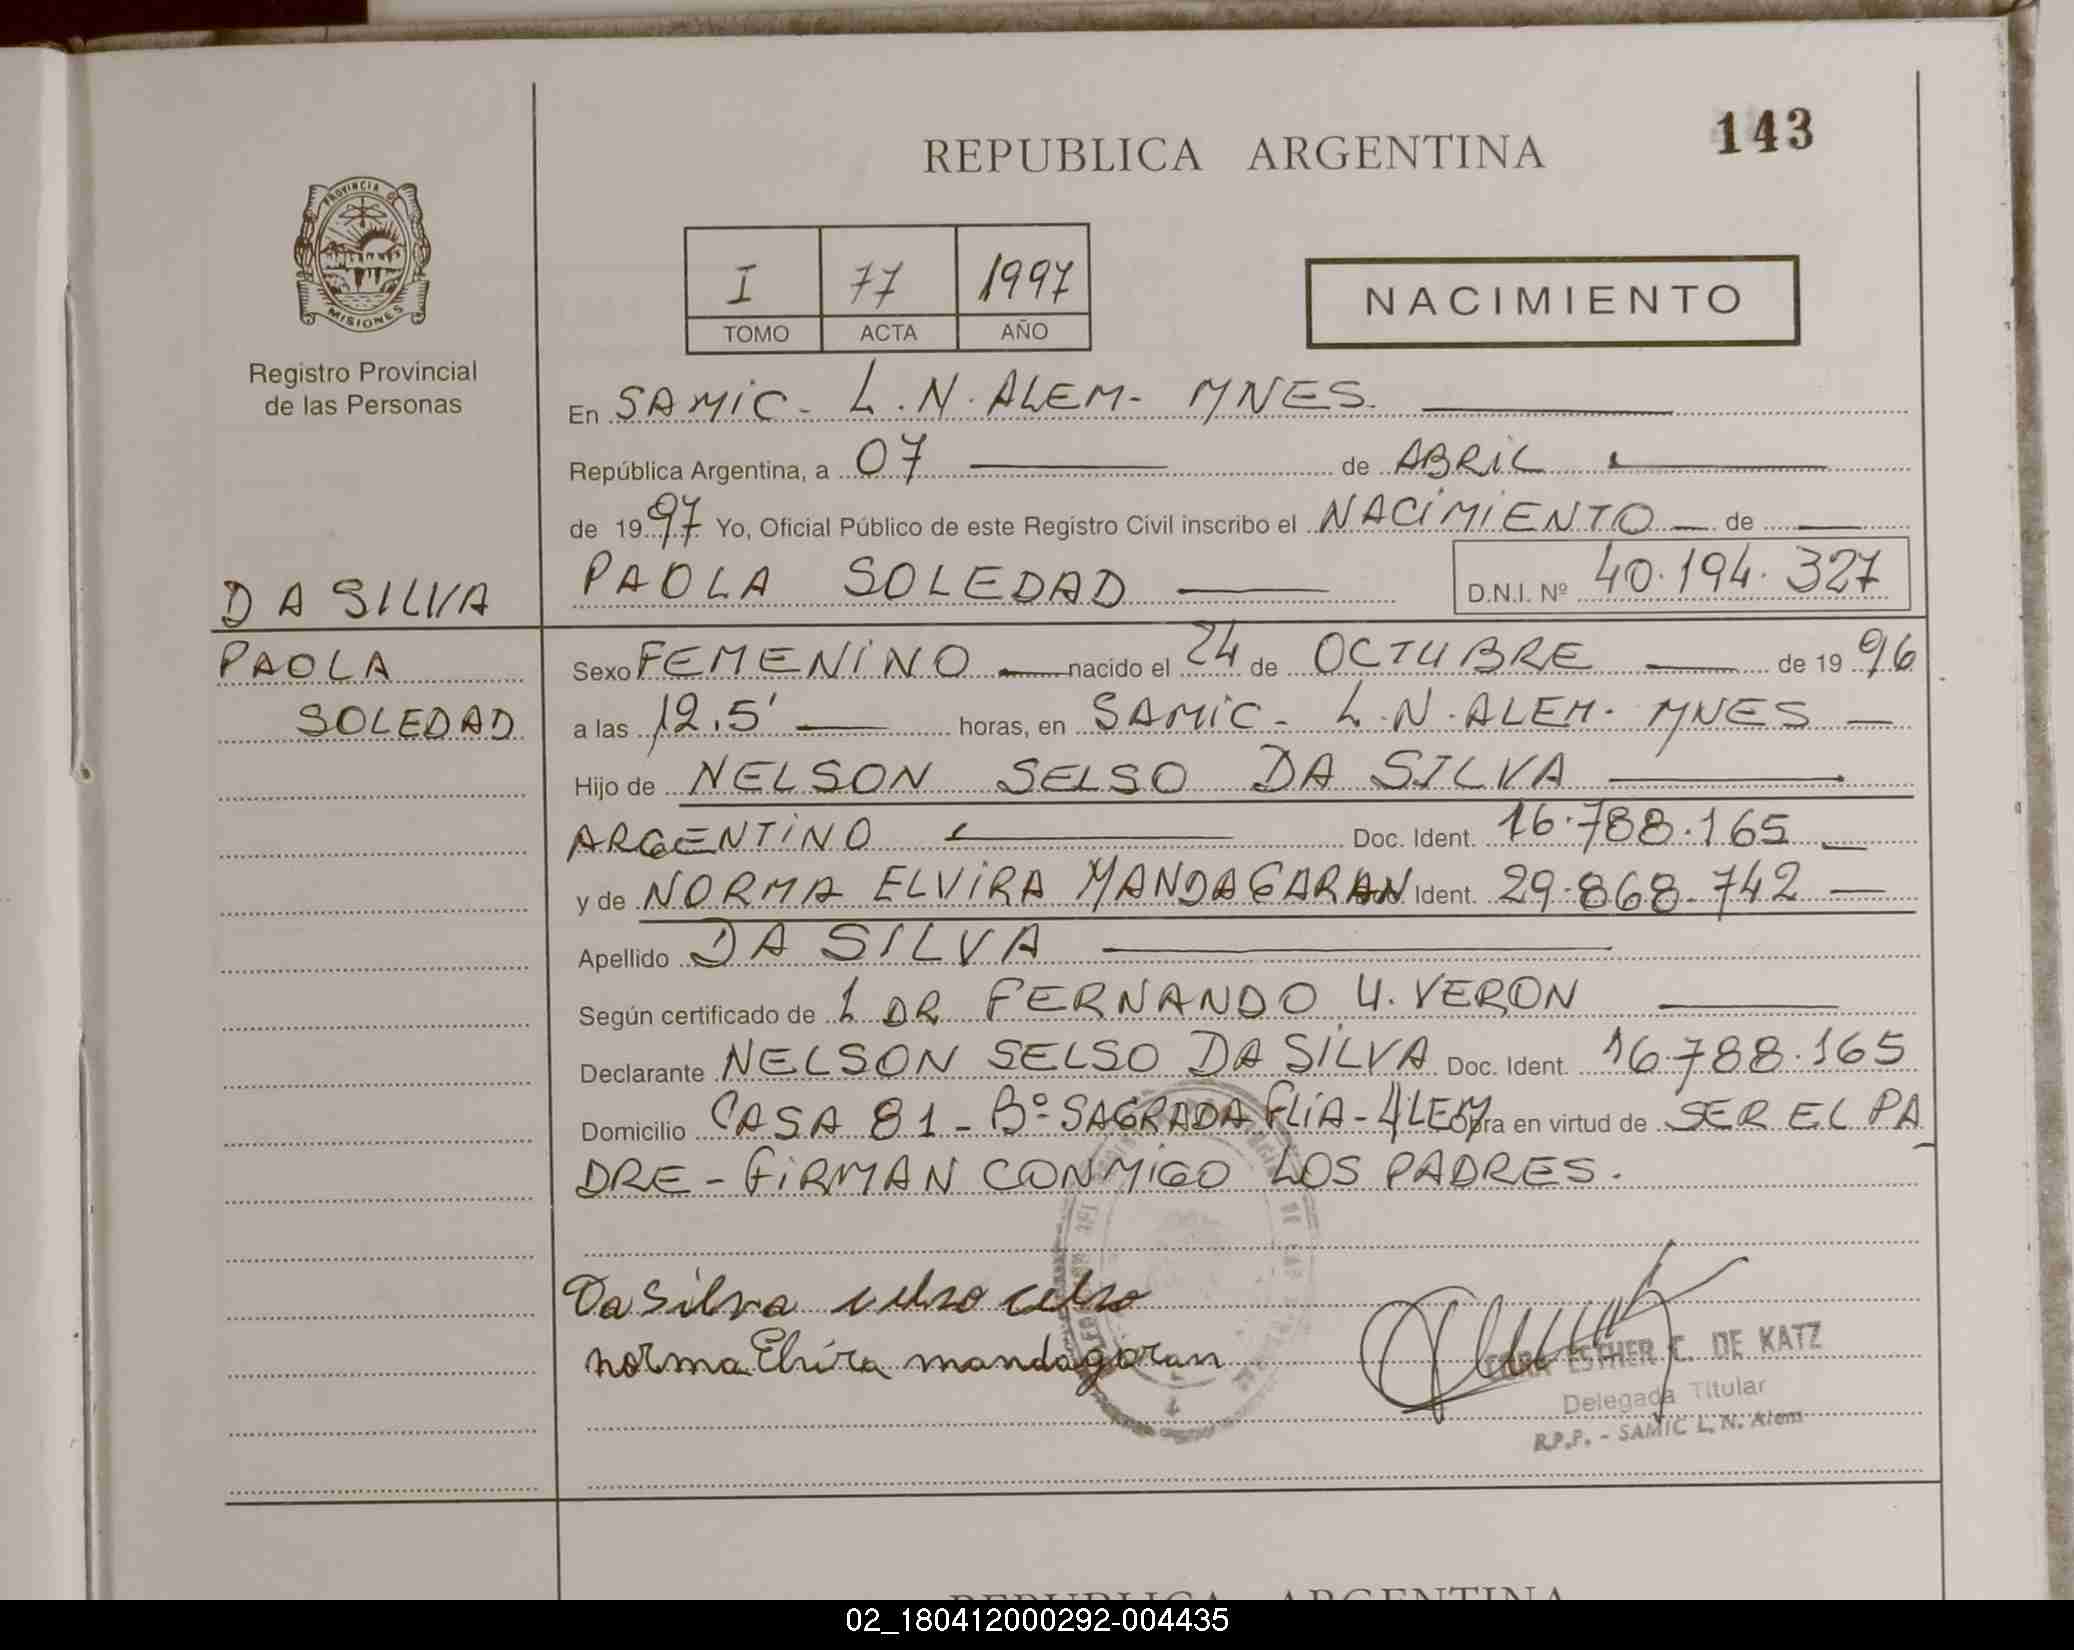 143
REPUBLICA ARGENTINA
PROVINCIA DE
MISIONES
Registro Provincial
de las Personas
I 77 1997
TOMO ACTA AÑO
NACIMIENTO
En SAMIC - L.N. ALEM - MNES.
República Argentina, a 07 de ABRIL
de 1997 Yo, Oficial Público de este Registro Civil inscribo el NACIMIENTO de
DA SILVA PAOLA SOLEDAD D.N.I. Nº 40.194.327
PAOLA Sexo FEMENINO nacido el 24 de OCTUBRE de 1996
SOLEDAD a las 12.5' horas, en SAMIC - L.N. ALEM - MNES
Hijo de NELSON SELSO DA SILVA
ARGENTINO Doc. Ident. 16.788.165
y de NORMA ELVIRA MANDAGARAN Doc. Ident. 29.868.742
Apellido DA SILVA
Según certificado de L DR FERNANDO U. VERON
Declarante NELSON SELSO DA SILVA Doc. Ident. 16.788.165
Domicilio CASA 81 - Bº SAGRADA FLIA - ALEM Obra en virtud de SER EL PA
DRE - FIRMAN CONMIGO LOS PADRES.
Da Silva celso
norma Elvira mandagaran
ESTHER C. DE KATZ
Delegada Titular
R.P.P. - SAMIC L. N. Alem
REPUBLICA ARGENTINA
02_180412000292-004435